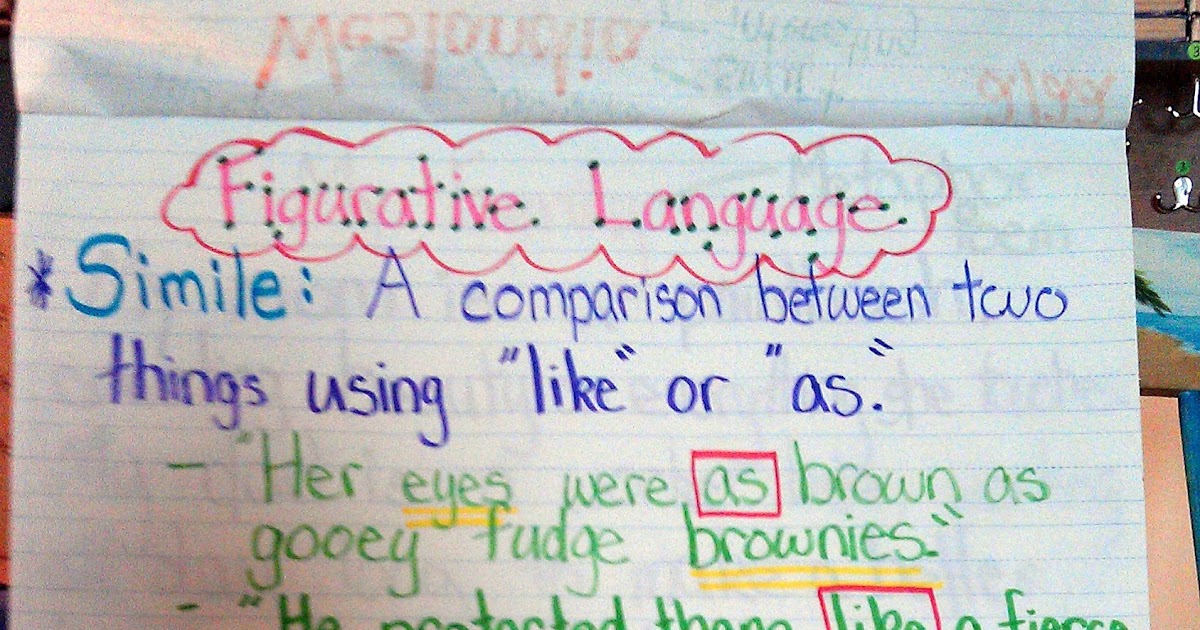 Figurative Language
* Simile: A comparison between two
things using "like" or "as."
- "Her eyes were as brown as
gooey fudge brownies."
- "He protected them like a fierce